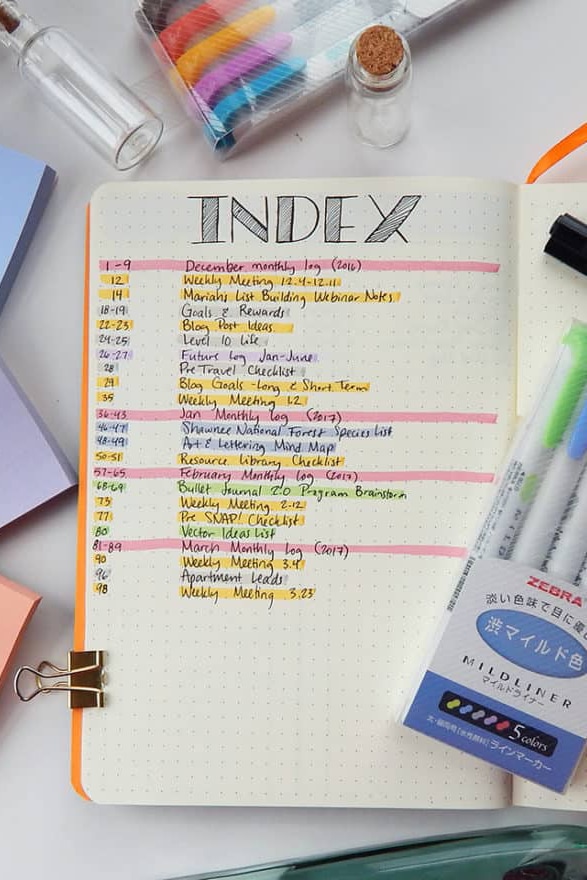 INDEX
1-9 December monthly log (2016)
12 Weekly Meeting 12.4-12.11
14 Mariah's List Building Webinar Notes
18-19 Goals & Rewards
22-23 Blog Post Ideas
24-25 Level 10 Life
26-27 Future log Jan-June
28 Pre Travel Checklist
29 Blog Goals - Long & Short Term
35 Weekly Meeting 1.2
36-43 Jan Monthly log (2017)
46-47 Shawnee National Forest Species List
48-49 Art & Lettering Mind Map
50-51 Resource Library Checklist
57-65 February Monthly log (2017)
68-69 Bullet Journal 2.0 Program Brainstorm
73 Weekly Meeting 2.12
77 Pre SNAP! Checklist
80 Vector Ideas List
81-89 March Monthly log (2017)
90 Weekly Meeting 3.4
96 Apartment Leads
98 Weekly Meeting 3.23
ZEBRA
淡い色味で目に
渋マイルド色
MILDLINER
マイルドライナー
5 colors
ラインマーカー